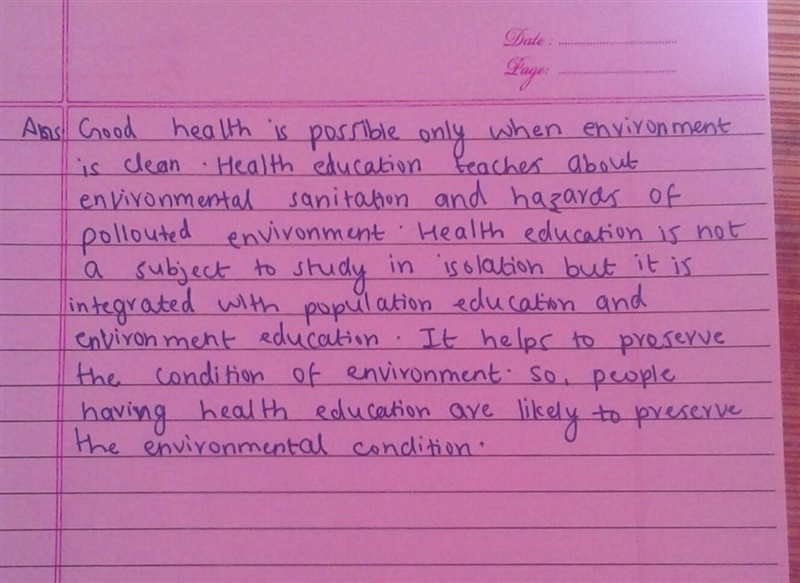 Date:
Page:
Ans Good health is possible only when environment
is clean. Health education teaches about
environmental sanitation and hazards of
pollouted environment. Health education is not
a subject to study in isolation but it is
integrated with population education and
environment education. It helps to preserve
the condition of environment. So, people
having health education are likely to preserve
the environmental condition.